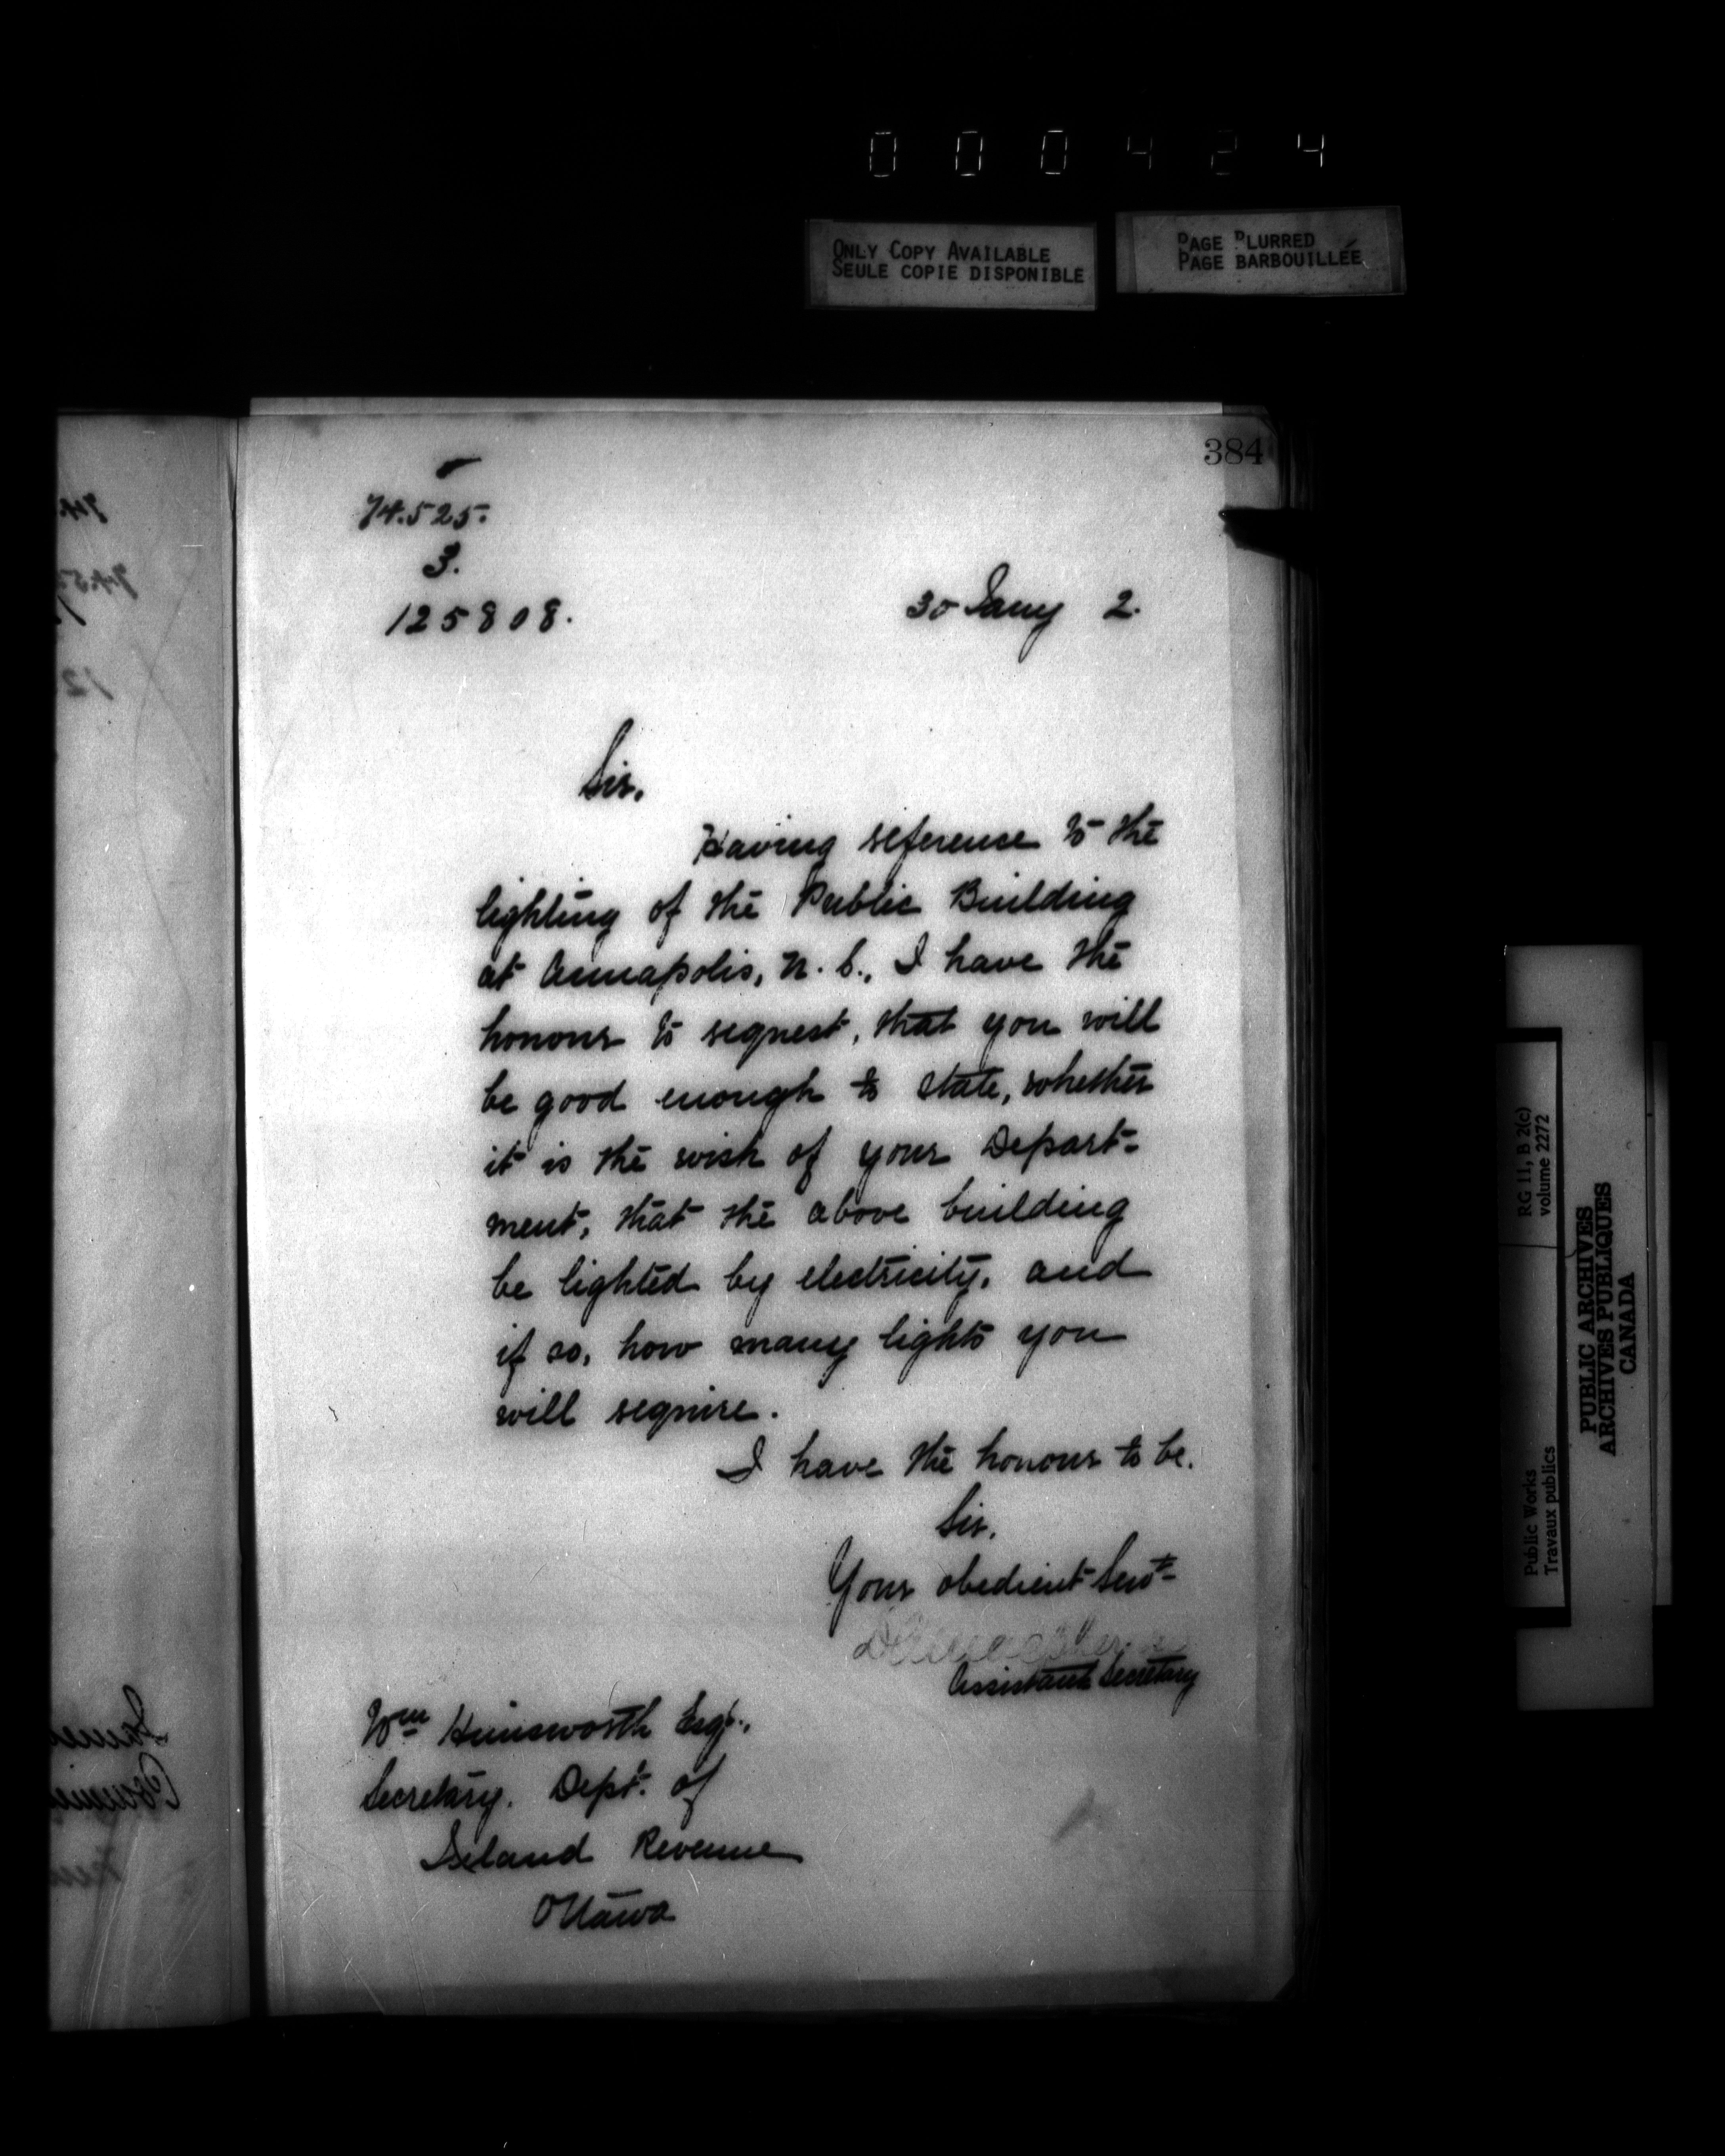 000424
ONLY COPY AVAILABLE
SEULE COPIE DISPONIBLE
PAGE BLURRED
PAGE BARBOUILLÉE
384
74.525.
3.
125808.
30 Jany 2.
Sir,
Having reference to the
lighting of the Public Building
at Annapolis, N. S., I have the
honour to request, that you will
be good enough to state, whether
it is the wish of your Depart-
ment, that the above building
be lighted by electricity, and
if so, how many lights you
will require.
I have the honour to be,
Sir,
Your obedient Servt
Assistant Secretary
Wm Himsworth Esqr.,
Secretary, Dept. of
Inland Revenue
Ottawa
Public Works
Travaux publics
RG 11, B 2(c)
volume 2272
PUBLIC ARCHIVES
ARCHIVES PUBLIQUES
CANADA